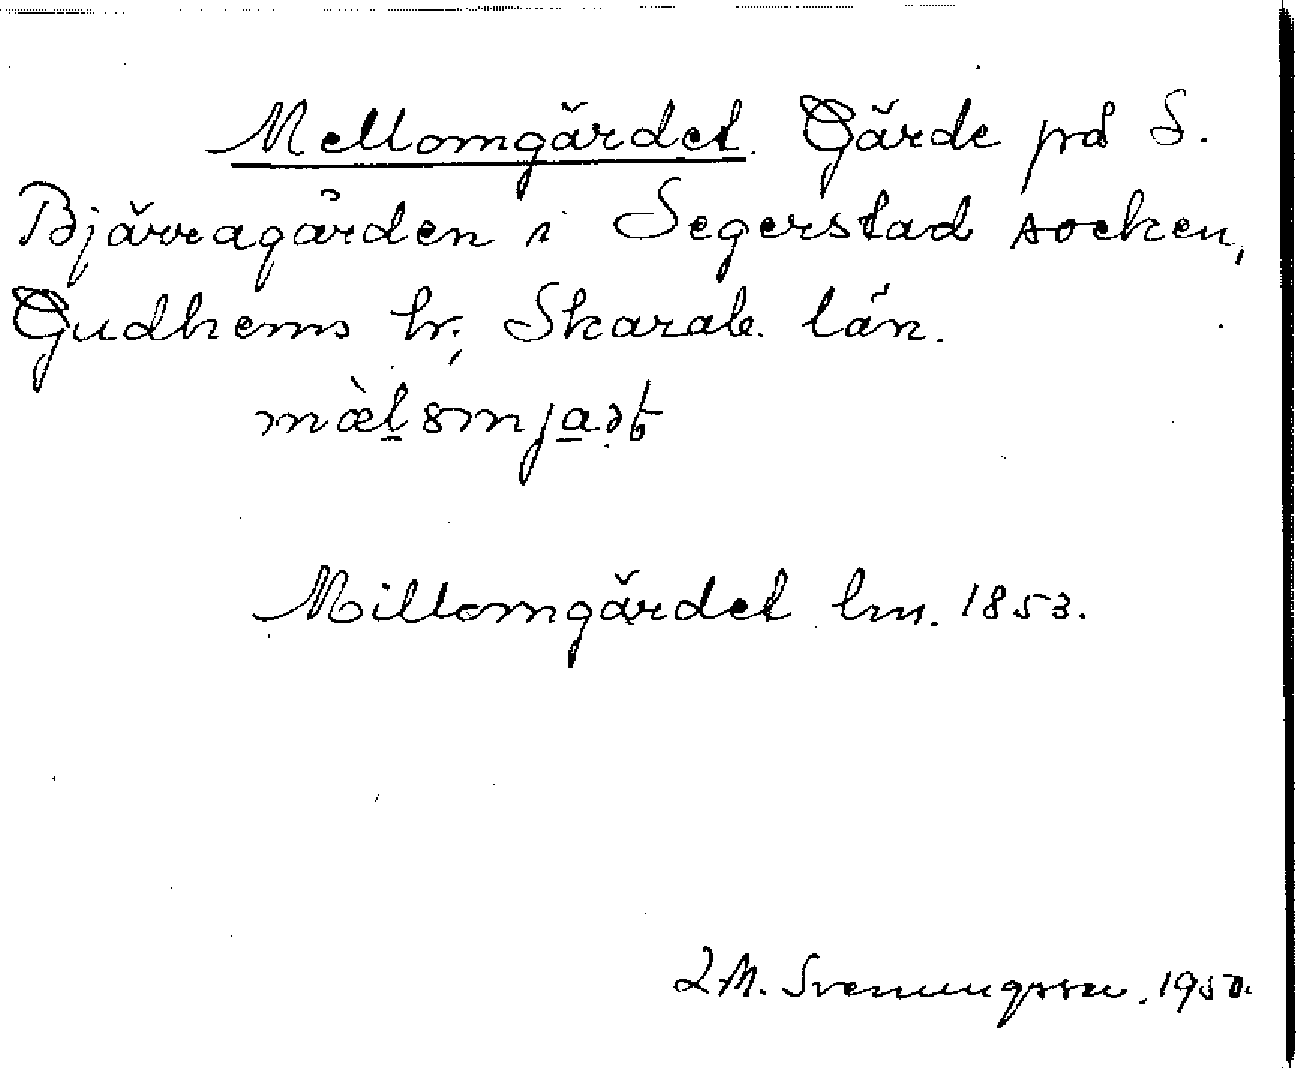 Mellomgärdet. Gärde på S.
Bjärragården i Segerstad socken,
Gudhems hr, Skarab. län.
Millomgärdet lm. 1853.
L M. Svenungsson. 1950.